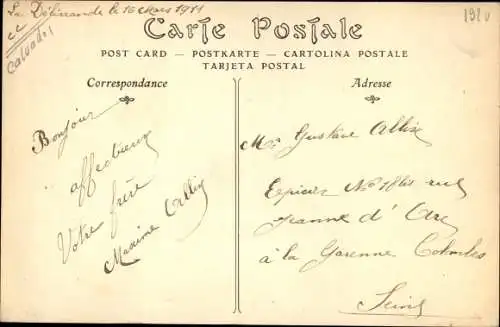 La Délivrande le 16 Mars 1911
Calvados
1920
Carte Postale
POST CARD — POSTKARTE — CARTOLINA POSTALE
TARJETA POSTAL
Correspondance
Bonjour
affectueux
Votre frère
Maxime Allix
Adresse
Mr Gustave Allix
Epicier No 18 bis rue
Jeanne d'Arc
à la Garenne Colombes
Seine